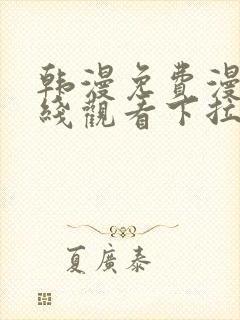 韩漫免費漫
綫觀看下拉
夏廣泰